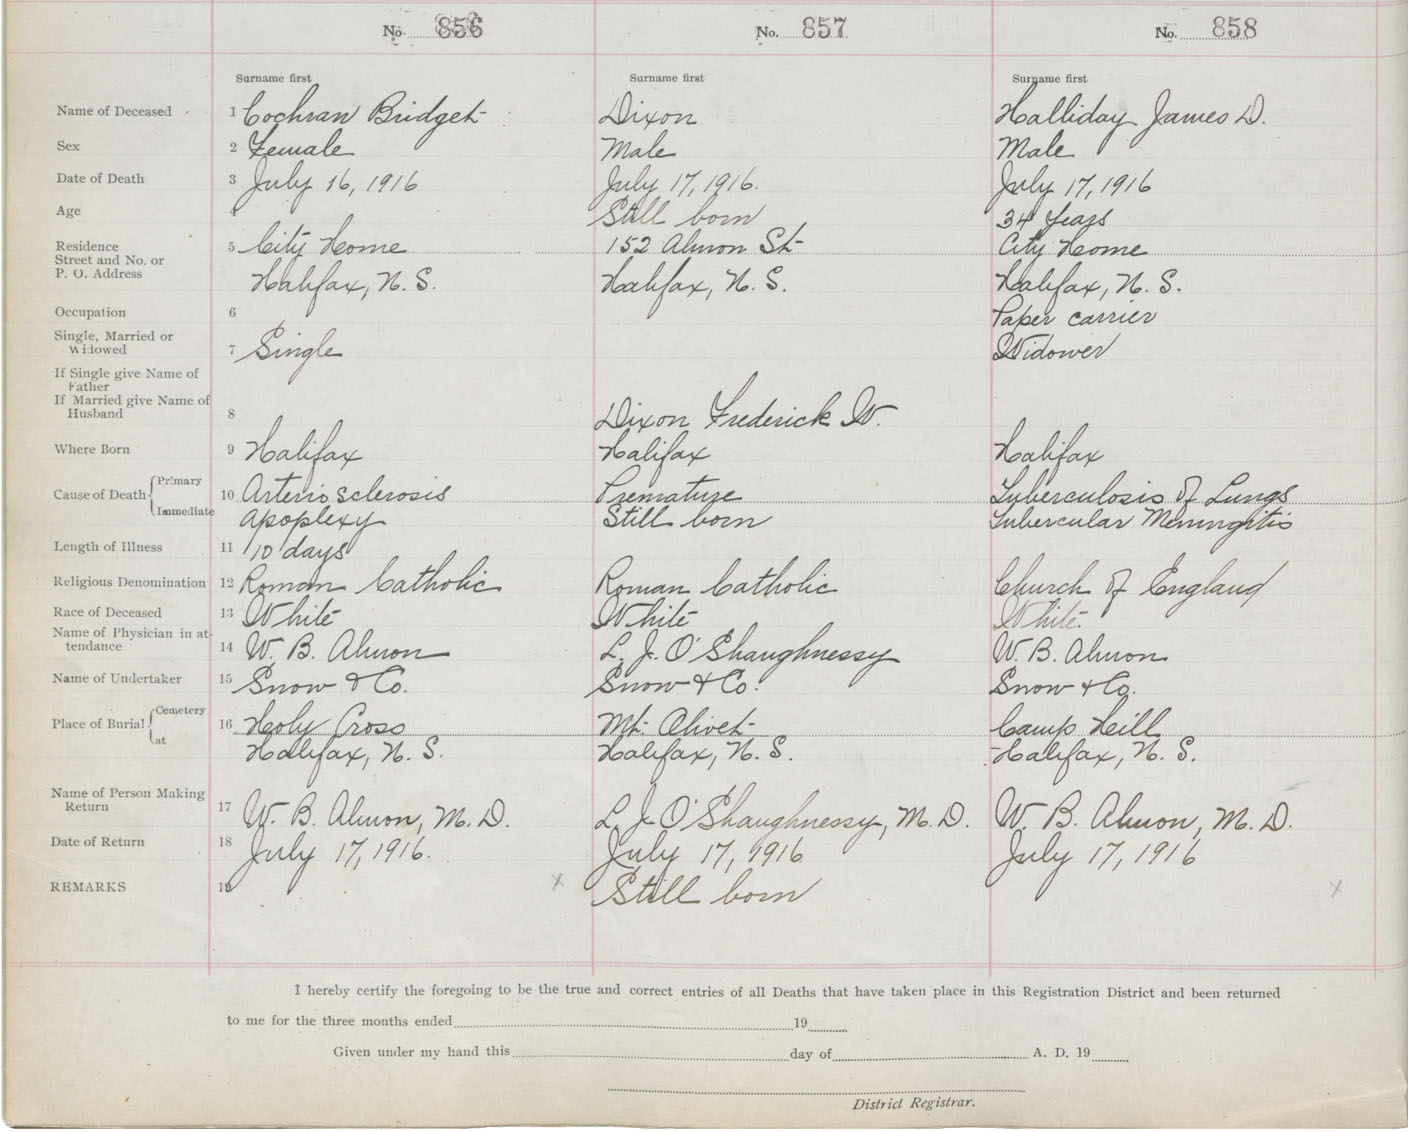 No. 856 No. 857 No. 858
Surname first Surname first Surname first
Name of Deceased 1 Cochran Bridget Dixon Halliday James D.
Sex 2 Female Male Male
Date of Death 3 July 16, 1916 July 17, 1916. July 17, 1916
Age 4 Still born 34 Years
Residence 5 City Home 152 Almon St City Home
Street and No. or
P. O. Address Halifax, N. S. Halifax, N. S. Halifax, N. S.
Occupation 6 Paper carrier
Single, Married or
Widowed 7 Single Widower
If Single give Name of
Father
If Married give Name of
Husband 8 Dixon Frederick W.
Where Born 9 Halifax Halifax Halifax
Cause of Death Primary 10 Arterio sclerosis Premature Tuberculosis of Lungs
Immediate apoplexy Still born Tubercular Meningitis
Length of Illness 11 10 days
Religious Denomination 12 Roman Catholic Roman Catholic Church of England
Race of Deceased 13 White White White.
Name of Physician in at-
tendance 14 W. B. Almon L. J. O'Shaughnessy W. B. Almon
Name of Undertaker 15 Snow & Co. Snow & Co. Snow & Co.
Place of Burial Cemetery 16 Holy Cross Mt. Olivet Camp Hill
at Halifax, N. S. Halifax, N. S. Halifax, N. S.
Name of Person Making
Return 17 W. B. Almon, M. D. L. J. O'Shaughnessy, M. D. W. B. Almon, M. D.
Date of Return 18 July 17, 1916. July 17, 1916 July 17, 1916
REMARKS 19 x Still born x
I hereby certify the foregoing to be the true and correct entries of all Deaths that have taken place in this Registration District and been returned
to me for the three months ended 19
Given under my hand this day of A. D. 19
District Registrar.